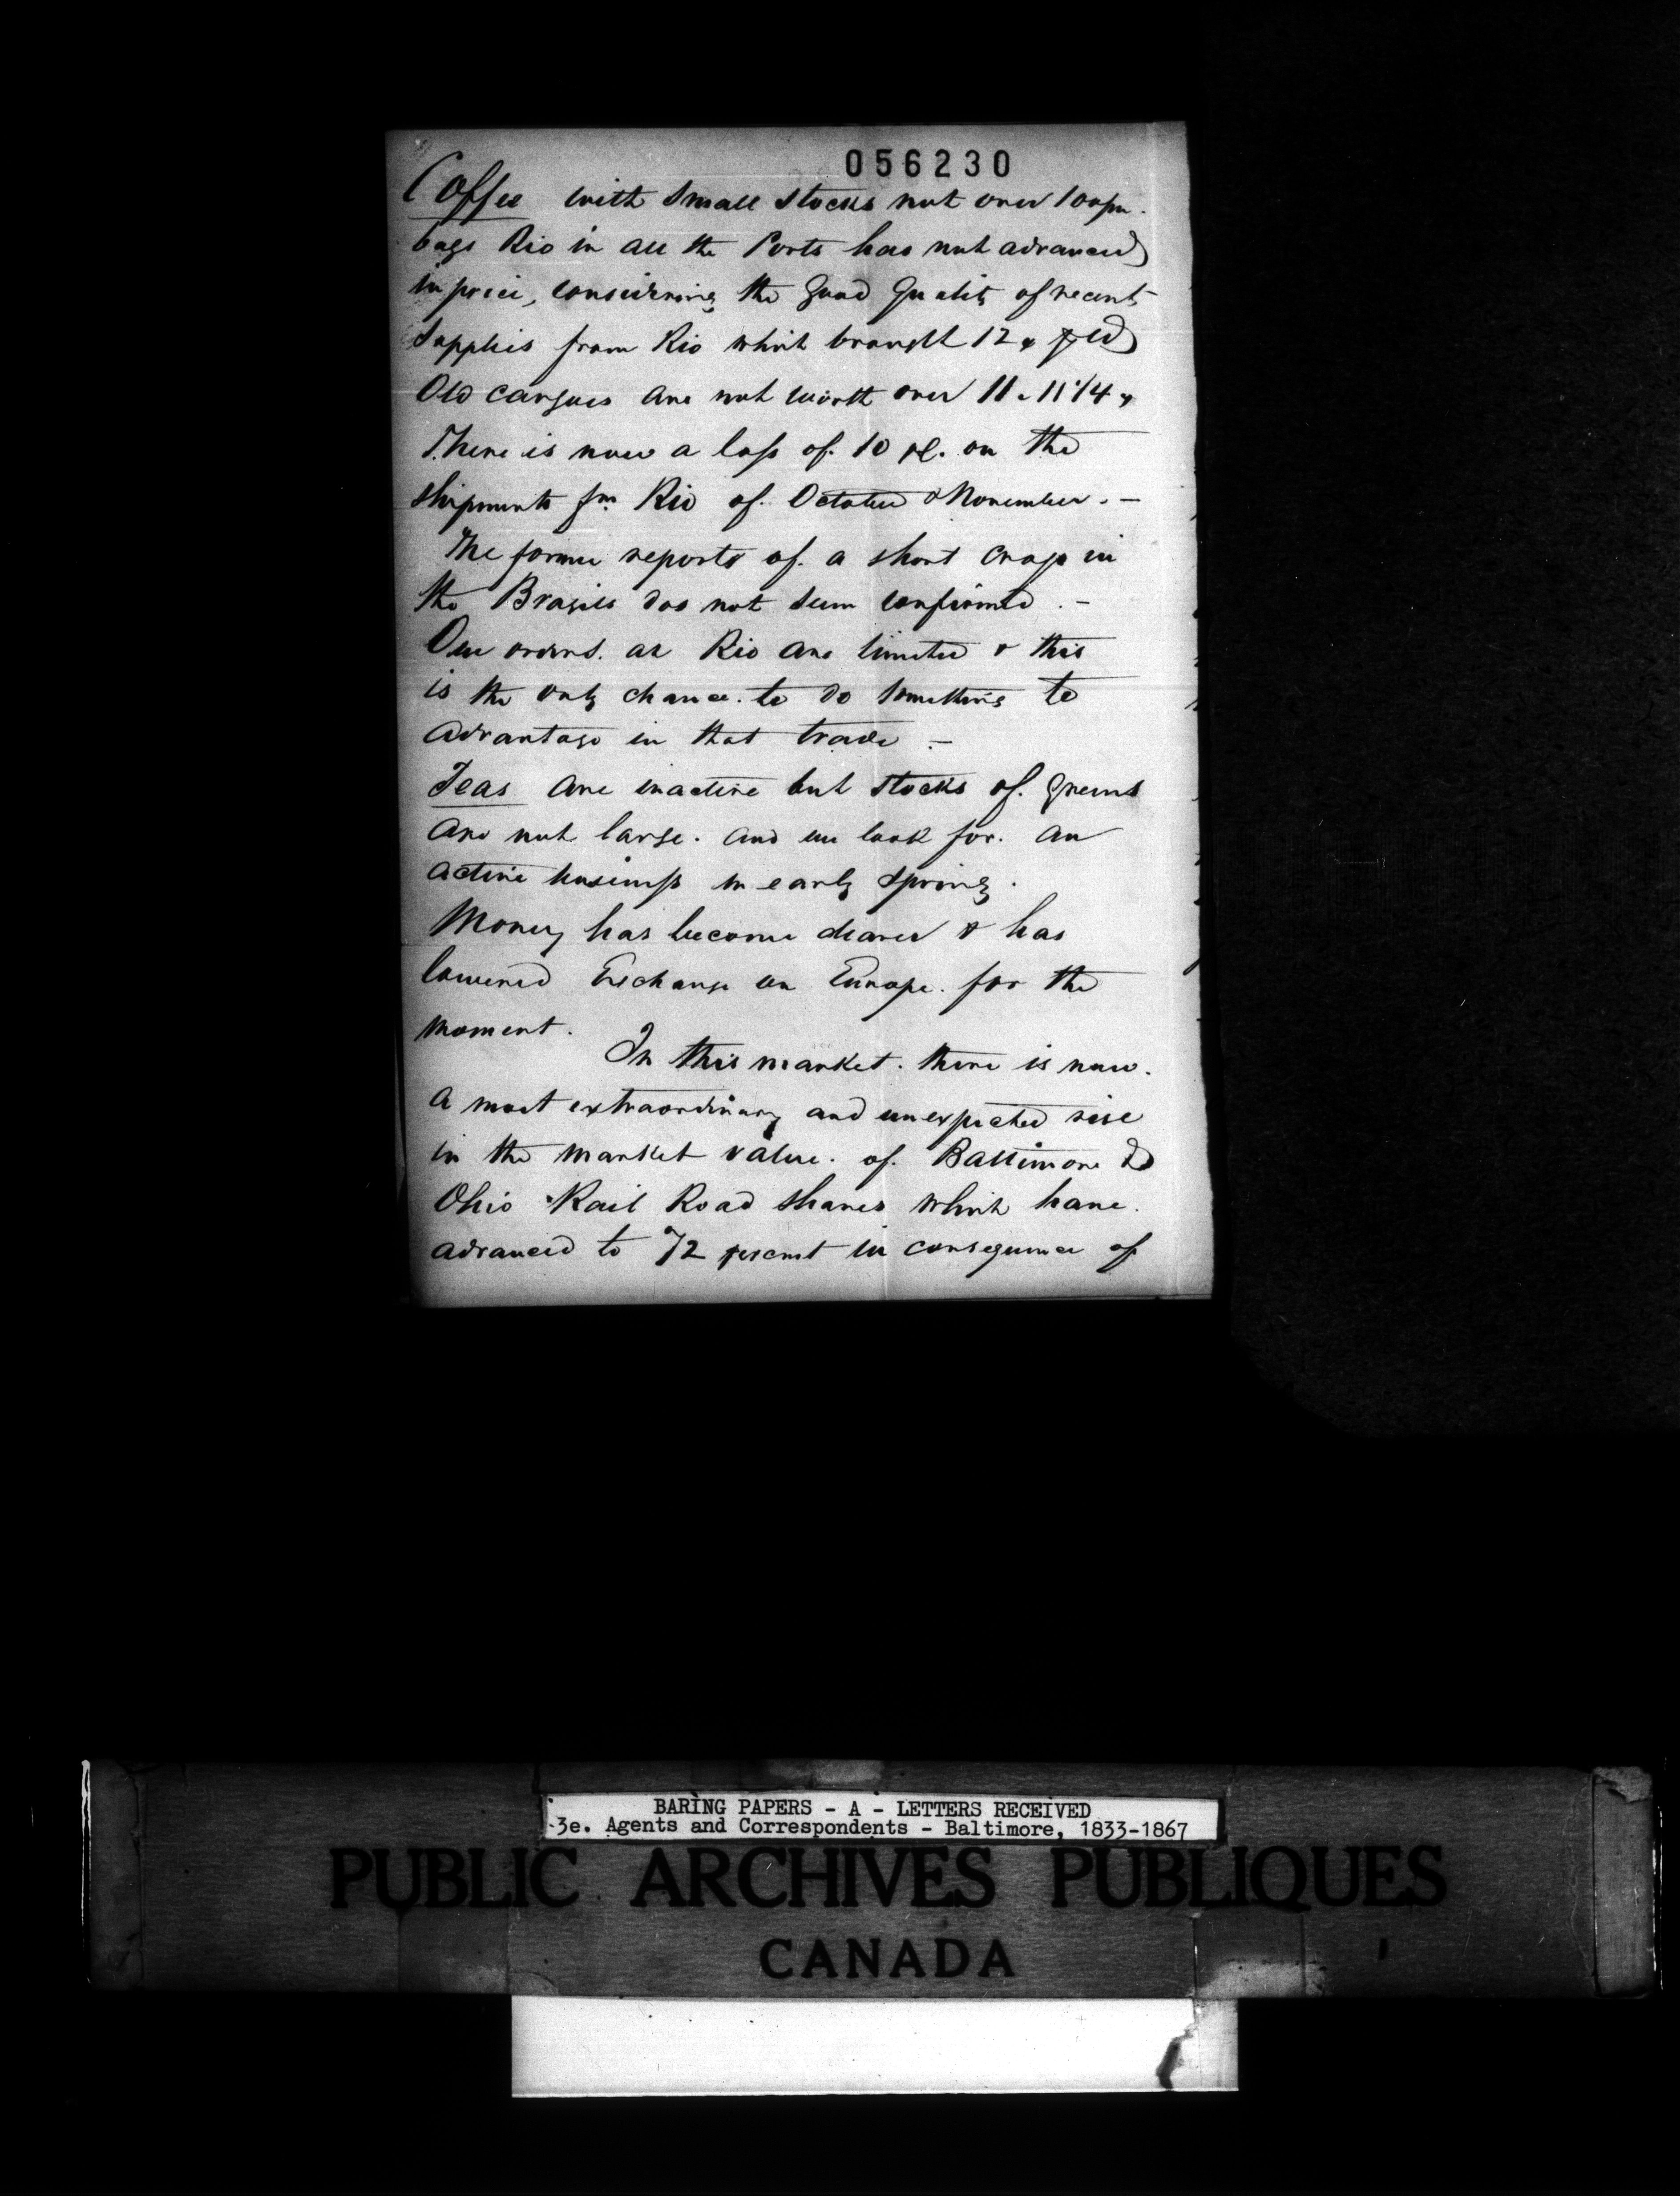 056230
Coffee with small stocks not over 100/m.
bags Rio in all the Ports has not advanced
in price, considering the good quality of recent
supplies from Rio which brought 12
Old cargoes are not worth over 11 . 11 1/4
There is now a loss of. 10 pC. on the
shipments fm. Rio of. October & November. —
The former reports of. a short crop in
the Brasils does not seem confirmed. —
Our orders. at Rio are limited & this
is the only chance. to do something to
advantage in that trade —
Teas are inactive but stocks of. greens
are not large. and we look for. an
active business in early spring.
Money has become dearer & has
lowered Exchange on Europe. for the
moment.
In this market. there is now.
a most extraordinary and unexpected rise
in the market value. of. Baltimore &
Ohio Rail Road shares which have.
advanced to 72 percent in consequence of
BARING PAPERS - A - LETTERS RECEIVED
3e. Agents and Correspondents - Baltimore, 1833-1867
PUBLIC ARCHIVES PUBLIQUES
CANADA